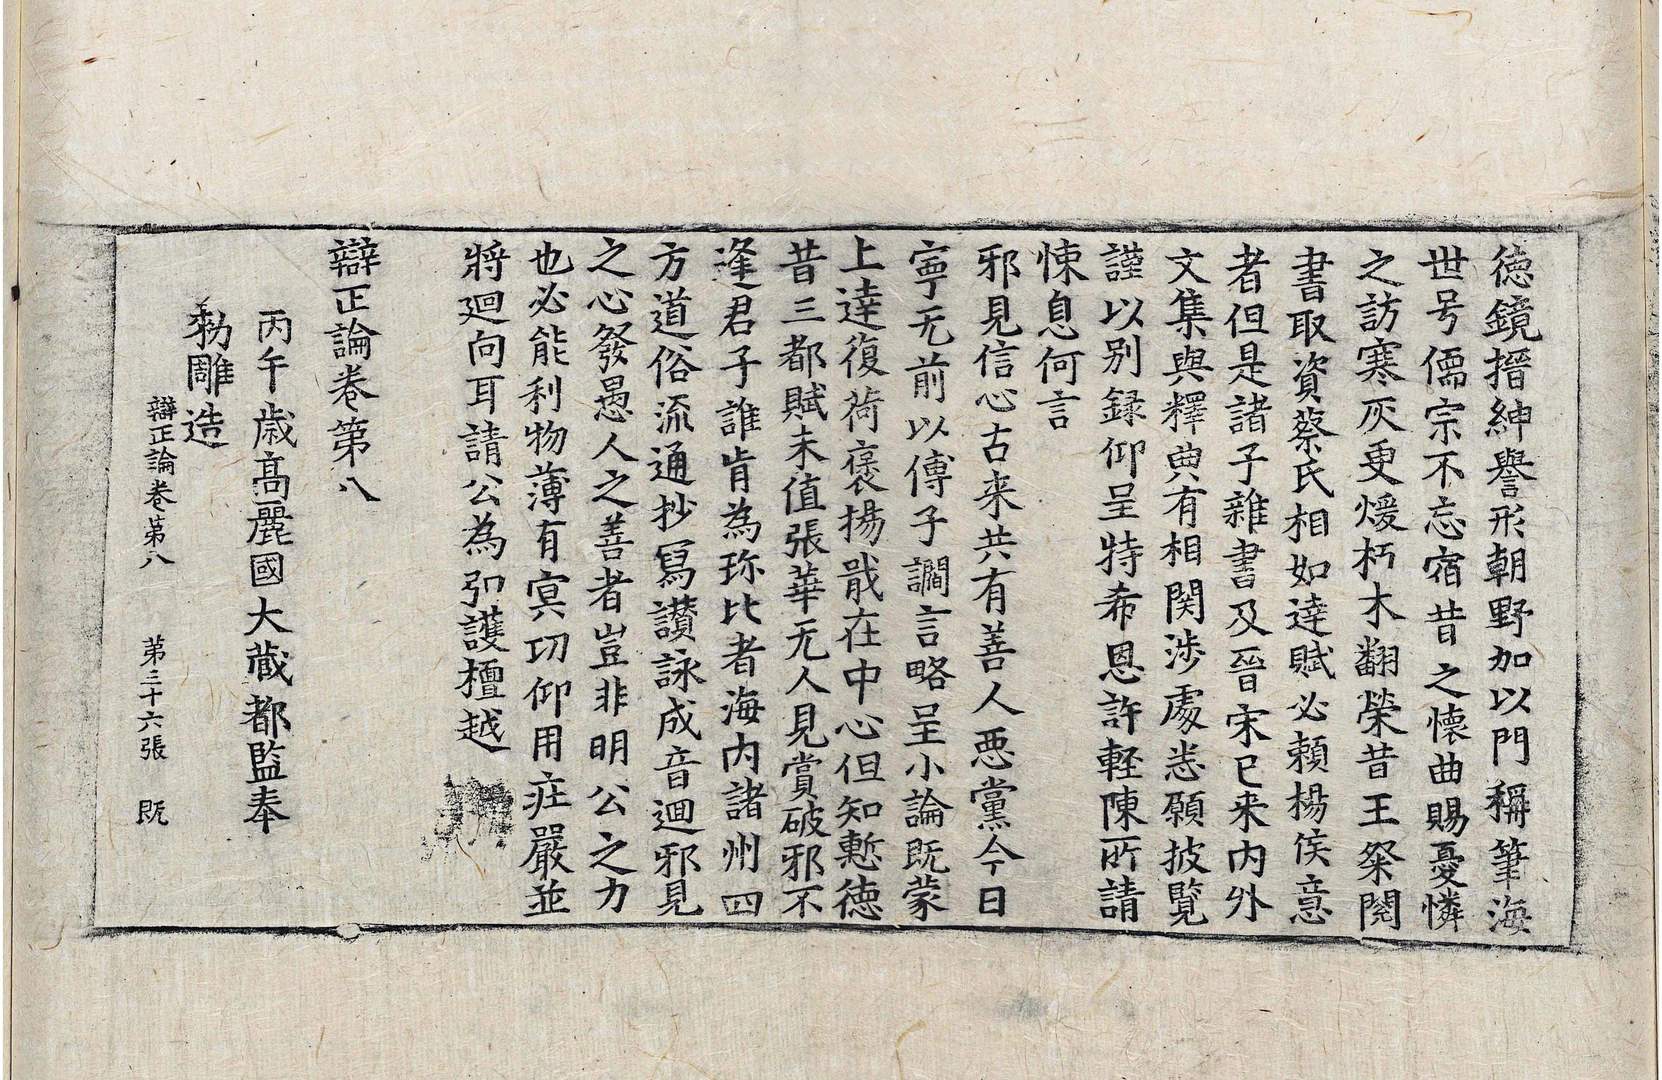 德鏡搢紳譽形朝野加以門稱筆海
世号儒宗不忘宿昔之懷曲賜憂憐
之訪寒灰更煖朽木翻榮昔王粲閱
書取資蔡氏相如達賦必賴楊侯意
者但是諸子雜書及晉宋已来內外
文集與釋典有相関涉處悉願披覽
謹以別錄仰呈特希恩許輕陳所請
悚息何言
邪見信心古来共有善人惡黨今日
寧无前以傅子讇言略呈小論既蒙
上達復荷襃揚戢在中心但知慙德
昔三都賦未值張華无人見賞破邪不
逢君子誰肯為珎比者海內諸州四
方道俗流通抄寫讃詠成音迴邪見
之心發愚人之善者豈非明公之力
也必能利物薄有冥功仰用莊嚴並
將迴向耳請公為弘護檀越
辯正論卷第八
丙午歲高麗國大藏都監奉
勑雕造
辯正論卷第八 第三十六張 既